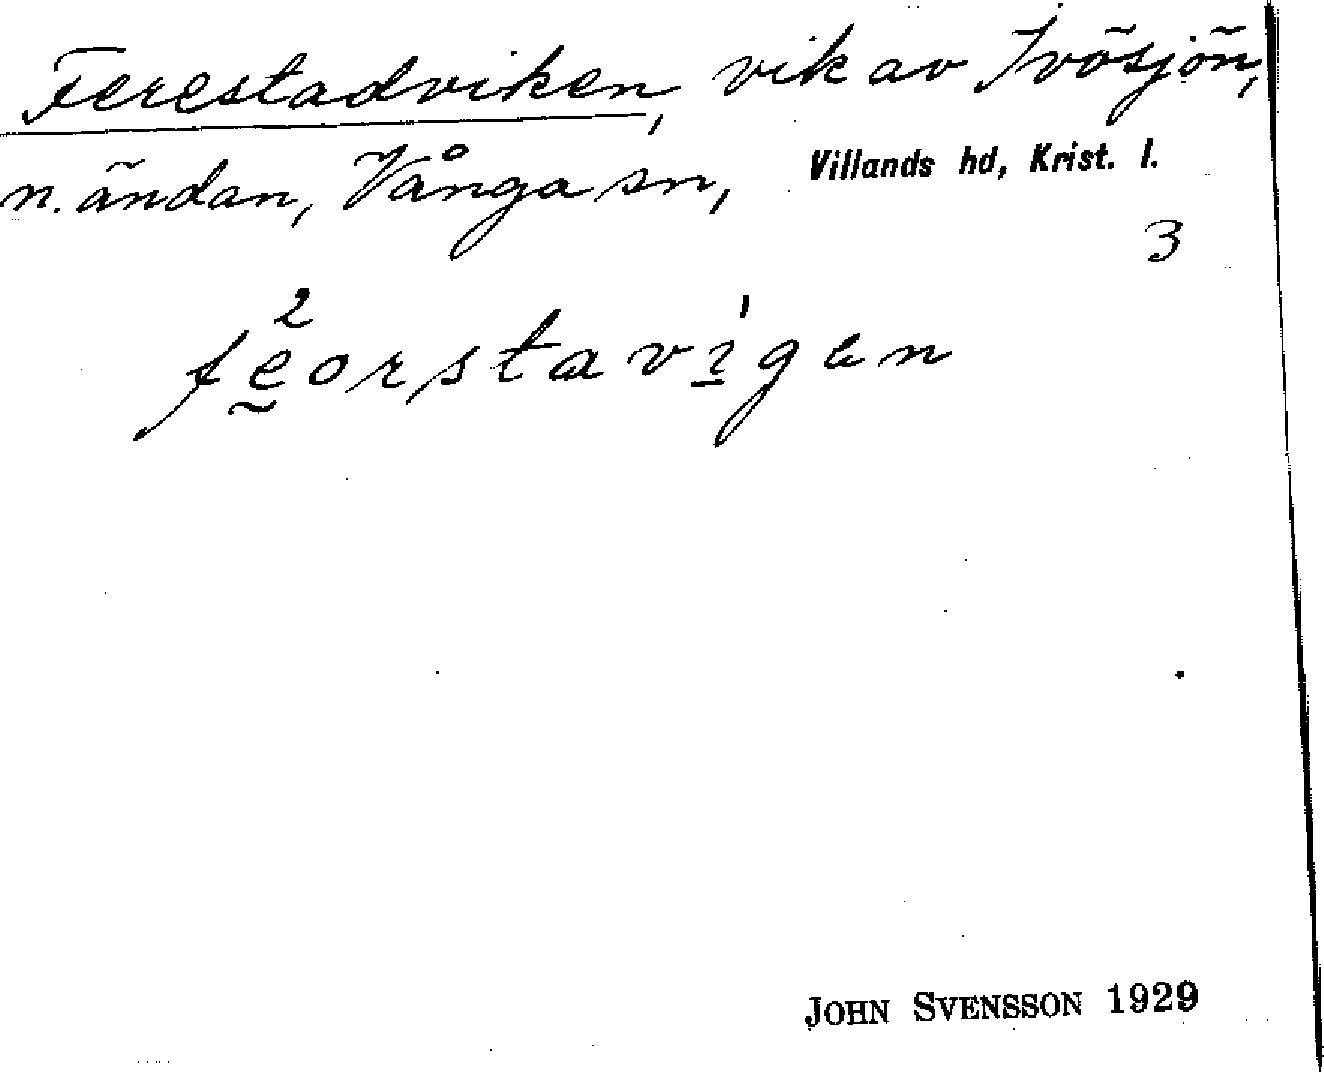 Ferestadviken, vik av Ivösjön,
n. ändan, Vånga sn, Villands hd, Krist. l.
3
feorstavigen
JOHN SVENSSON 1929